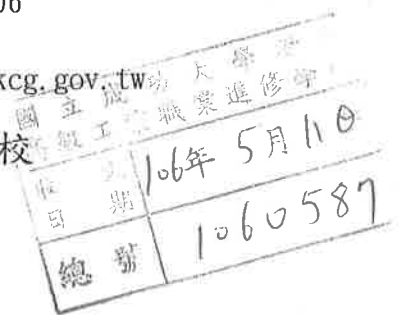 06
kcg.gov.tw
校
國立成功大學
工 職業進修學
日期
106年5月11日
總號
1060587